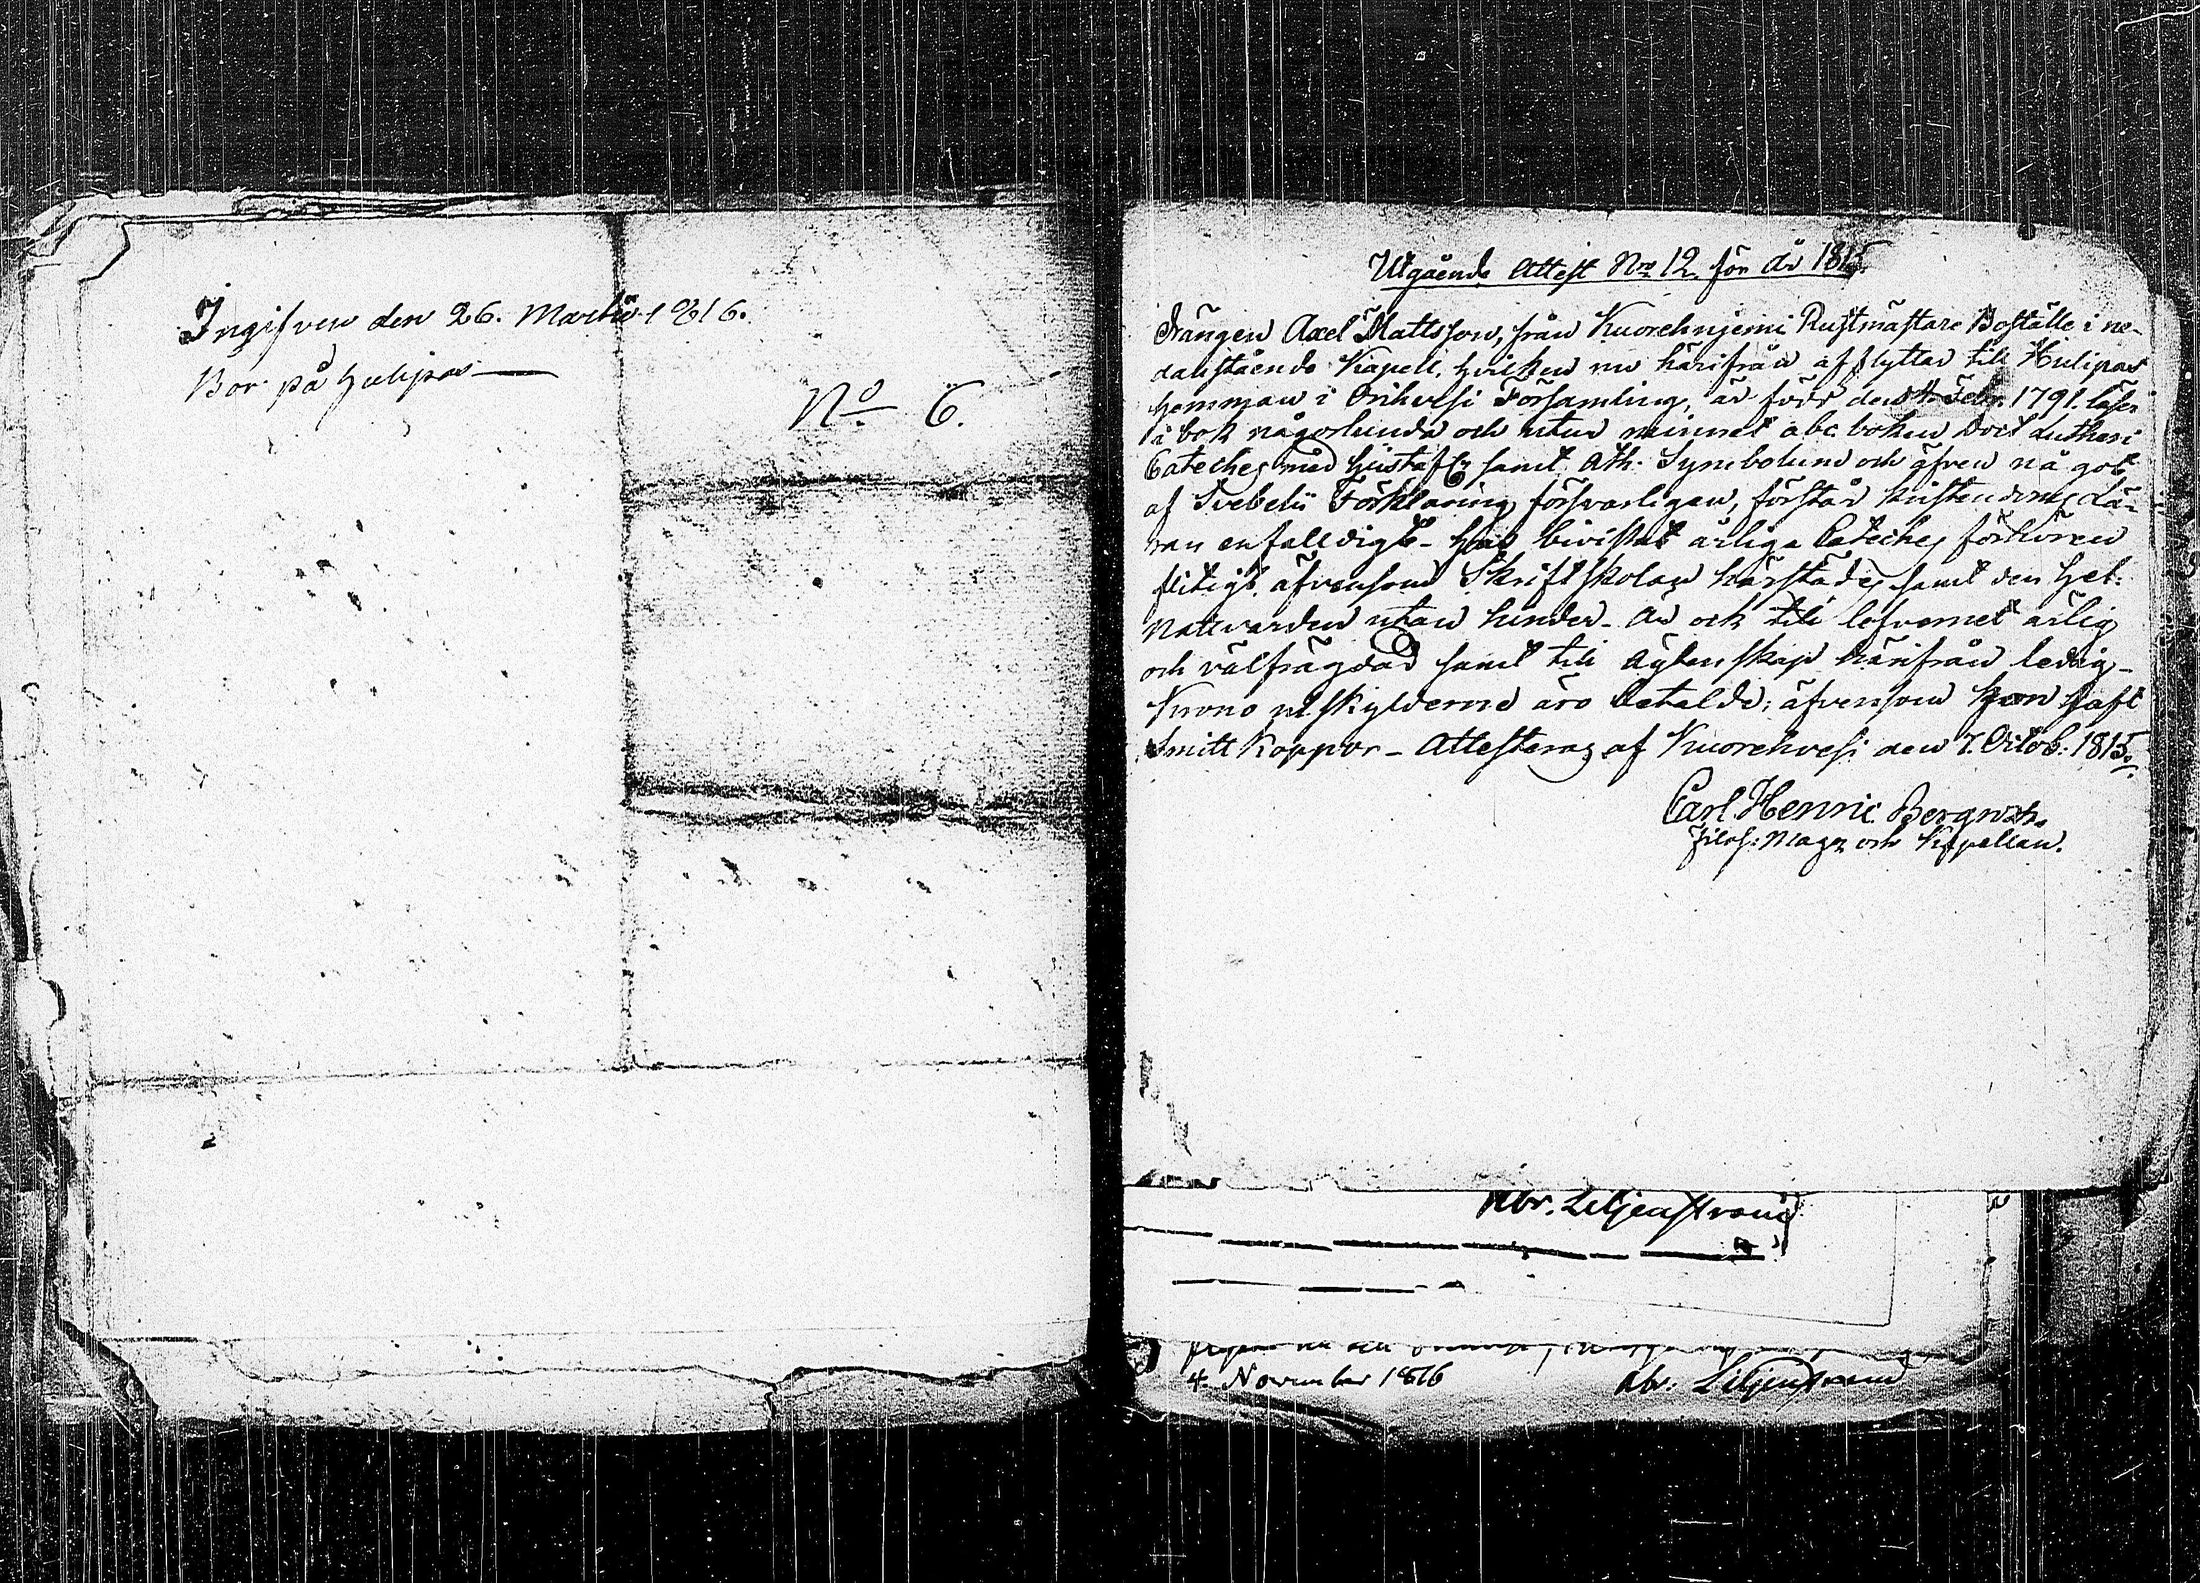 Ingifven den 26. Martii 1816.
Bor på Hulipas
No 6.
Utgående Attest No 12 för år 1815.
Drängen Axel Mattsson, från Kuorehnjemi Rustmästare Boställe i ne-
danstående Kapell, hvilken nu härifrån afflyttar till Hulipas
hemman i Orihvesi Församling, är född den 4 Febr. 1791. läser
i bok någorlunda och utur minnet abc boken Doct Lutheri
Cateches med Hustafl. samt Ath. Symbolum och äfven något
af Svebelii Förklaring försvarligen, förstår kristendoms Lä-
ran enfalldigt. Har bivistat årliga Cateches förhören
flitigt, äfvensom Skriftskolan härstädes samt den Hel:
Nattvarden utan hinder. Är ock till lefvernet ärlig
och välfrägdad samt till Äktenskap härifrån ledig.
Krono utskylderne äro betalde; äfvensom han haft
Smitt Koppor. Attesteras af Kuorehvesi den 7. Octob: 1815.
Carl Henric Bergroth.
Filos: Mag. och Kapellan.
Abr. Liljenstrand
4 November 1816 Abr: Liljenstrand